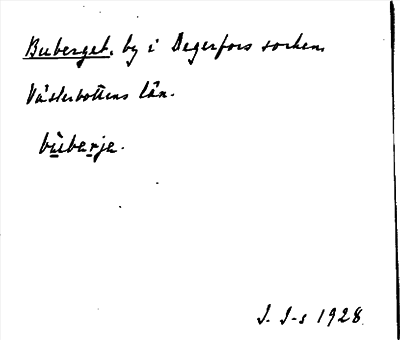 Buberget, by i Degerfors socken,
Västerbottens län.
bu̱be̱rje.
J. J-s 1928.